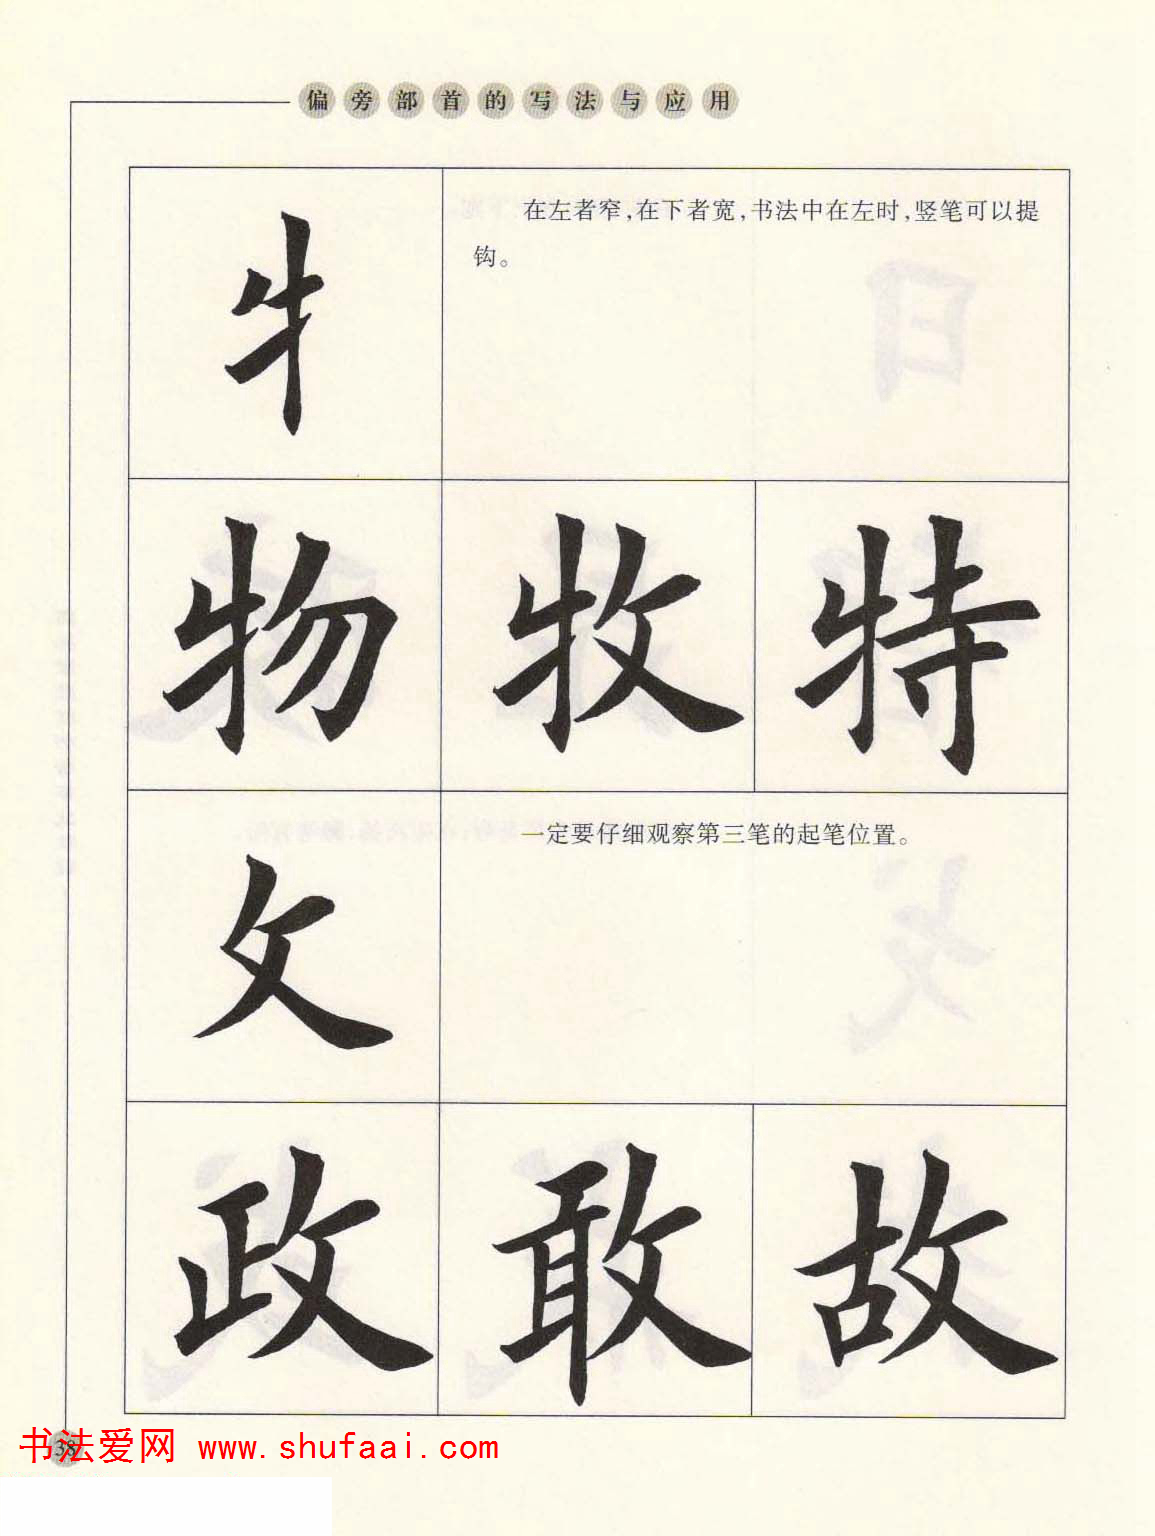 偏旁部首的写法与应用
牜
在左者窄，在下者宽，书法中在左时，竖笔可以提
钩。
物 牧 特
攵
一定要仔细观察第三笔的起笔位置。
政 敢 故
38
书法爱网 www.shufaai.com